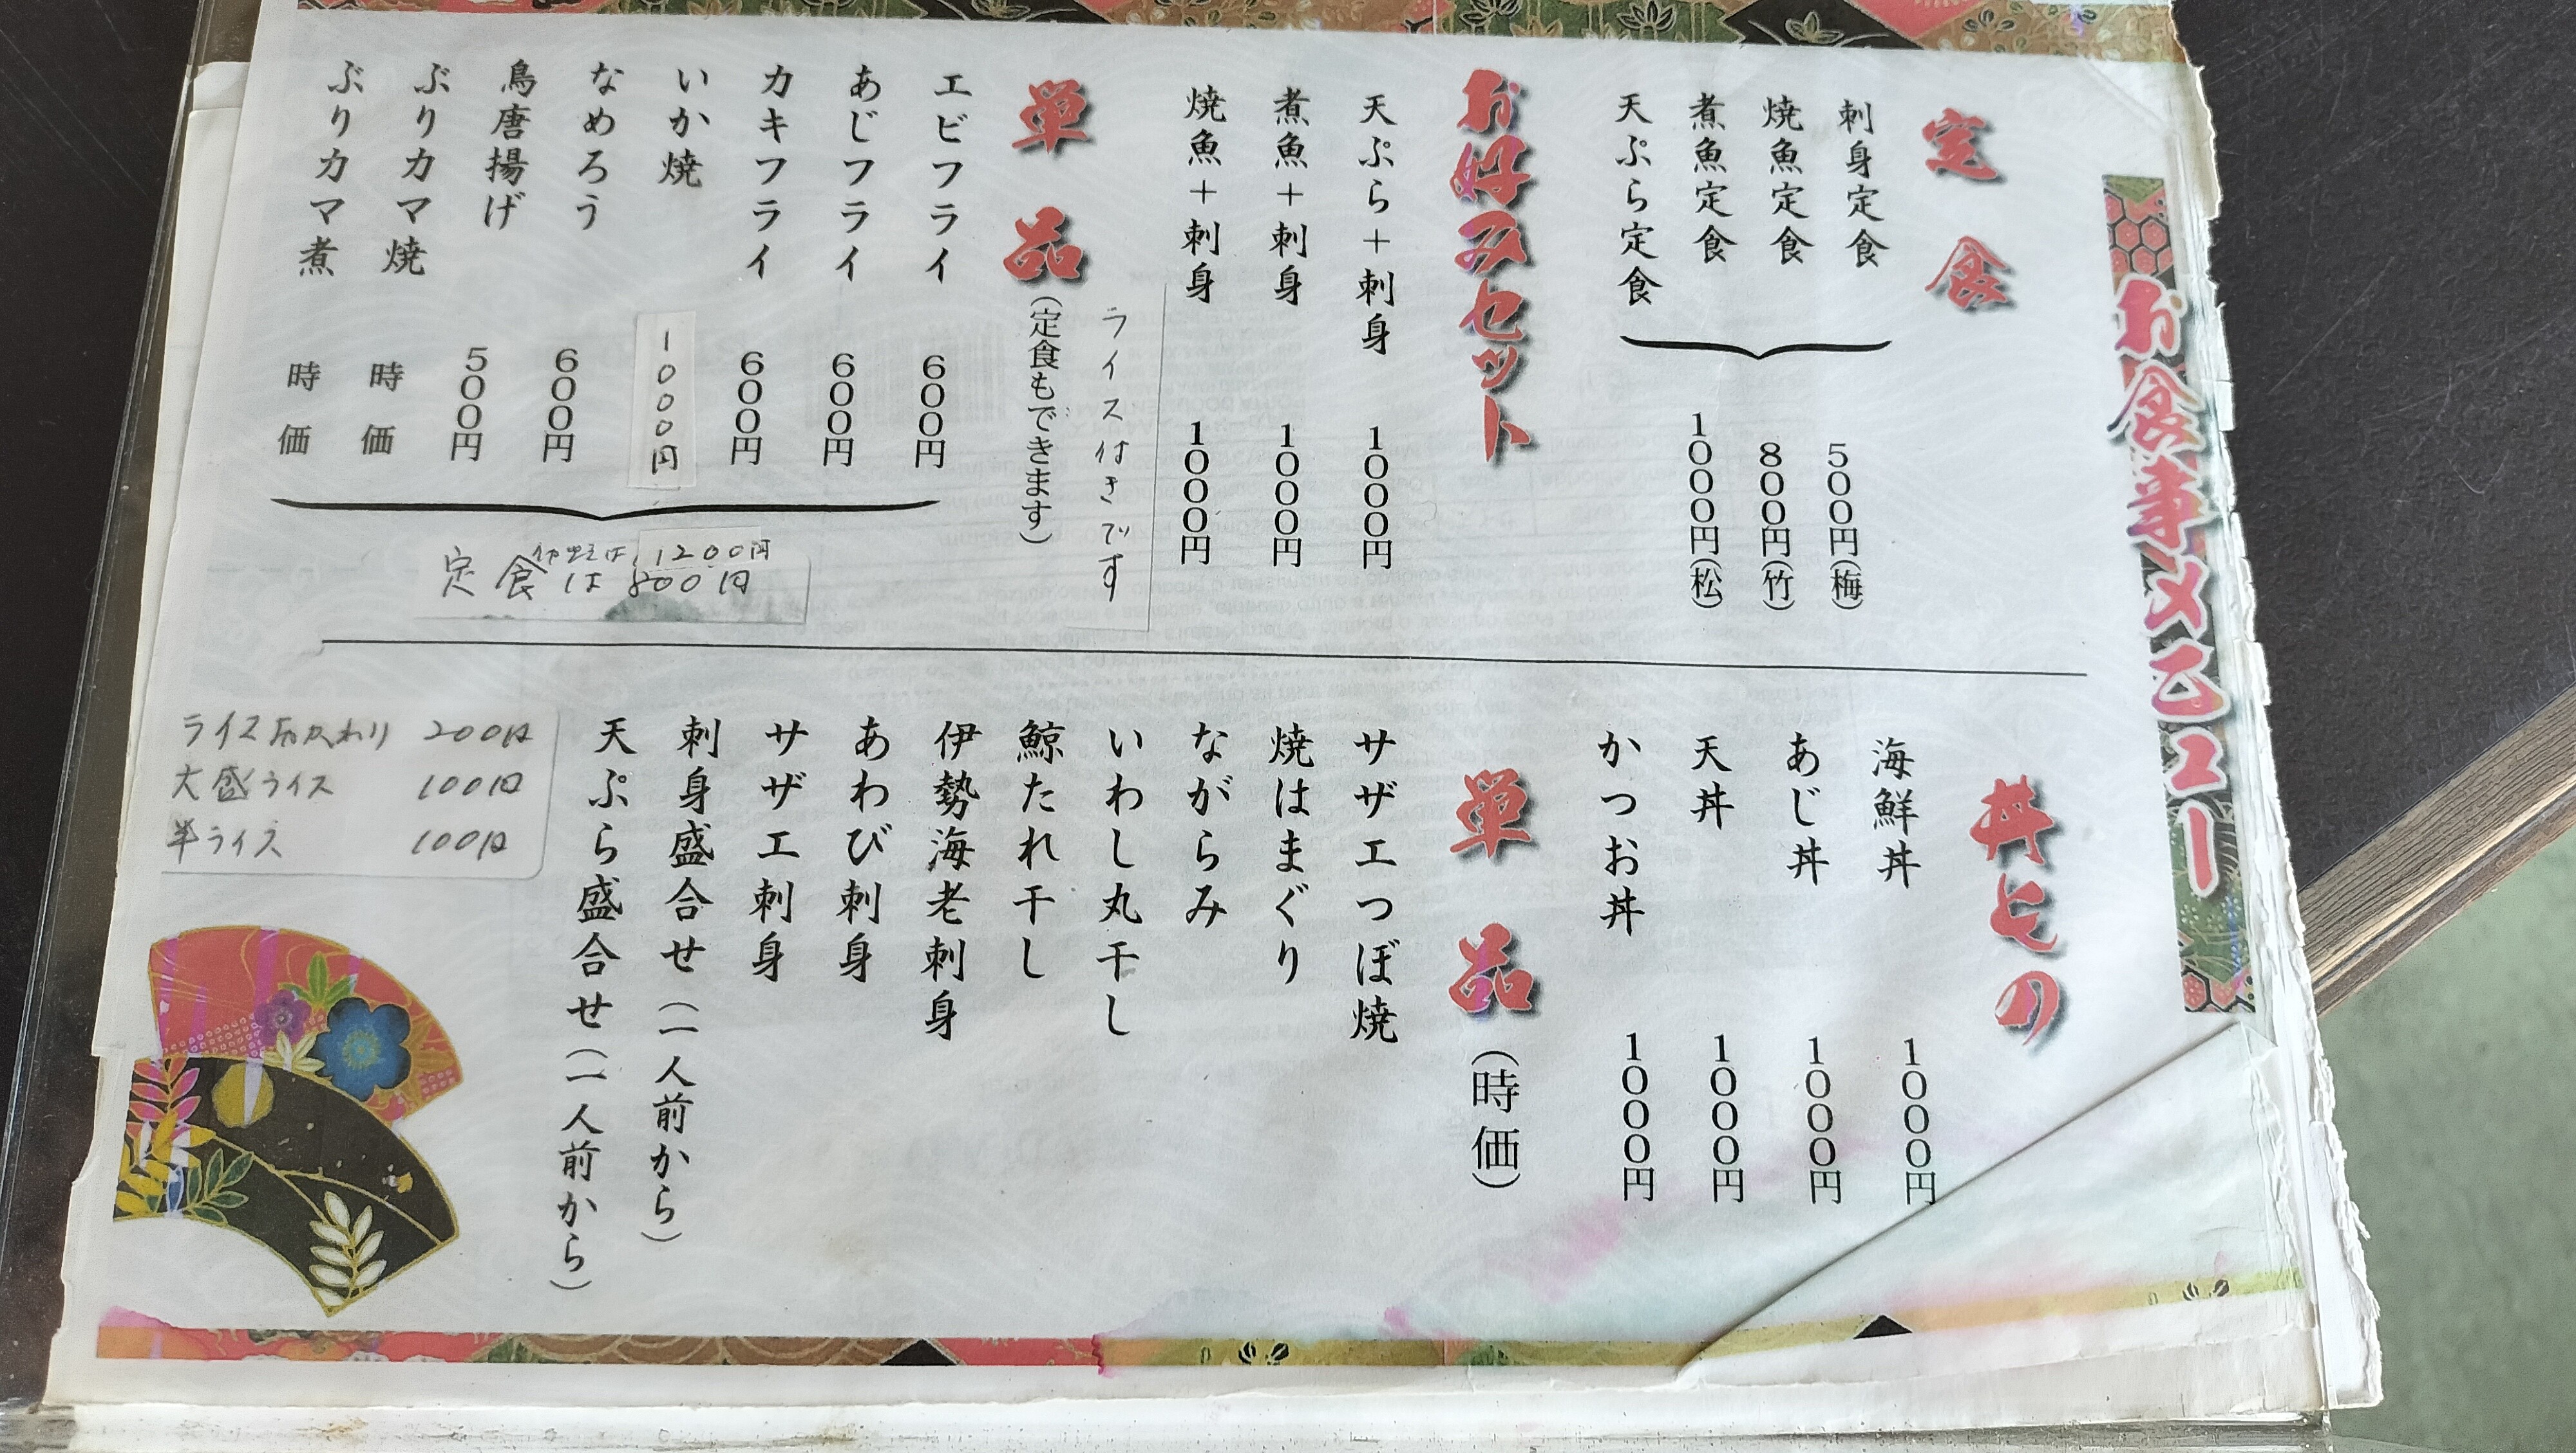 お食事メニュー
定食
刺身定食
焼魚定食
煮魚定食
天ぷら定食
500円(梅)
800円(竹)
1000円(松)
お好みセット
天ぷら+刺身 1000円
煮魚+刺身 1000円
焼魚+刺身 1000円
ライス付きです
単品(定食もできます)
エビフライ 600円
あじフライ 600円
カキフライ 600円
いか焼 1000円
なめろう 600円
鳥唐揚げ 500円
ぶりカマ焼 時価
ぶりカマ煮 時価
1200円
定食は800円
丼もの
海鮮丼 1000円
あじ丼 1000円
天丼 1000円
かつお丼 1000円
単品(時価)
サザエつぼ焼
焼はまぐり
ながらみ
いわし丸干し
鯨たれ干し
伊勢海老刺身
あわび刺身
サザエ刺身
刺身盛合せ(一人前から)
天ぷら盛合せ(一人前から)
ライスおかわり 200円
大盛ライス 100円
半ライス 100円